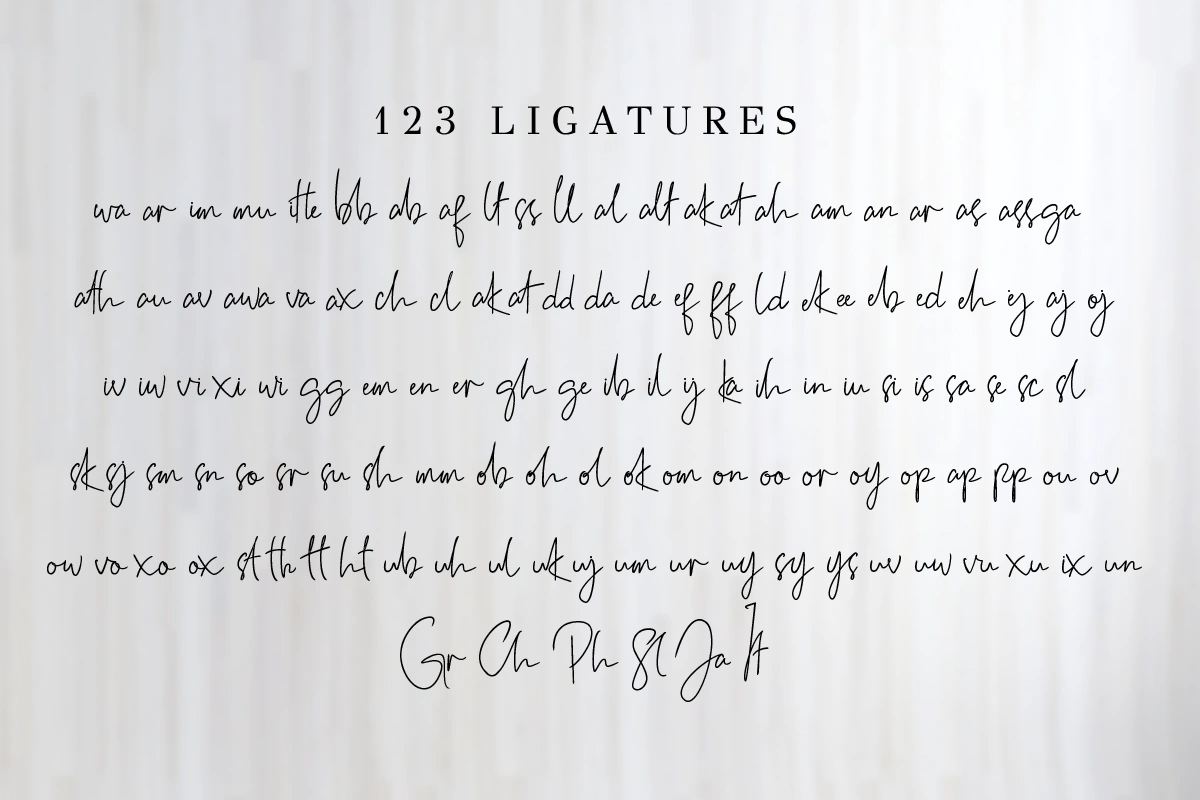 123 LIGATURES
wa ar im mu itte bb ab af lt ss ll al alt ak at ah am an ar as ass ga
ath au av awa va ax ch cl ak at dd da de ef ff ld ek ee eb ed eh ey aj oj
iv iw vi xi wi gg em en er gh ge ib il ij ka ih in iu si is sa se sc sl
sk sj sm sn so sr su sh mm ob oh ol ok om on oo or oy op ap pp ou ov
ow vo xo ox st th tt ht ub uh ul uk uj um ur uy sy ys uv uw vu xu ix un
Gr Ch Ph Sl Ja It